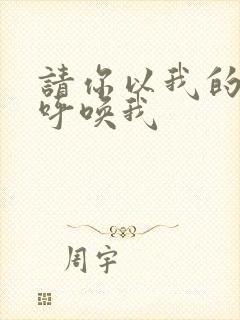 請你以我的
呼喚我
周宇